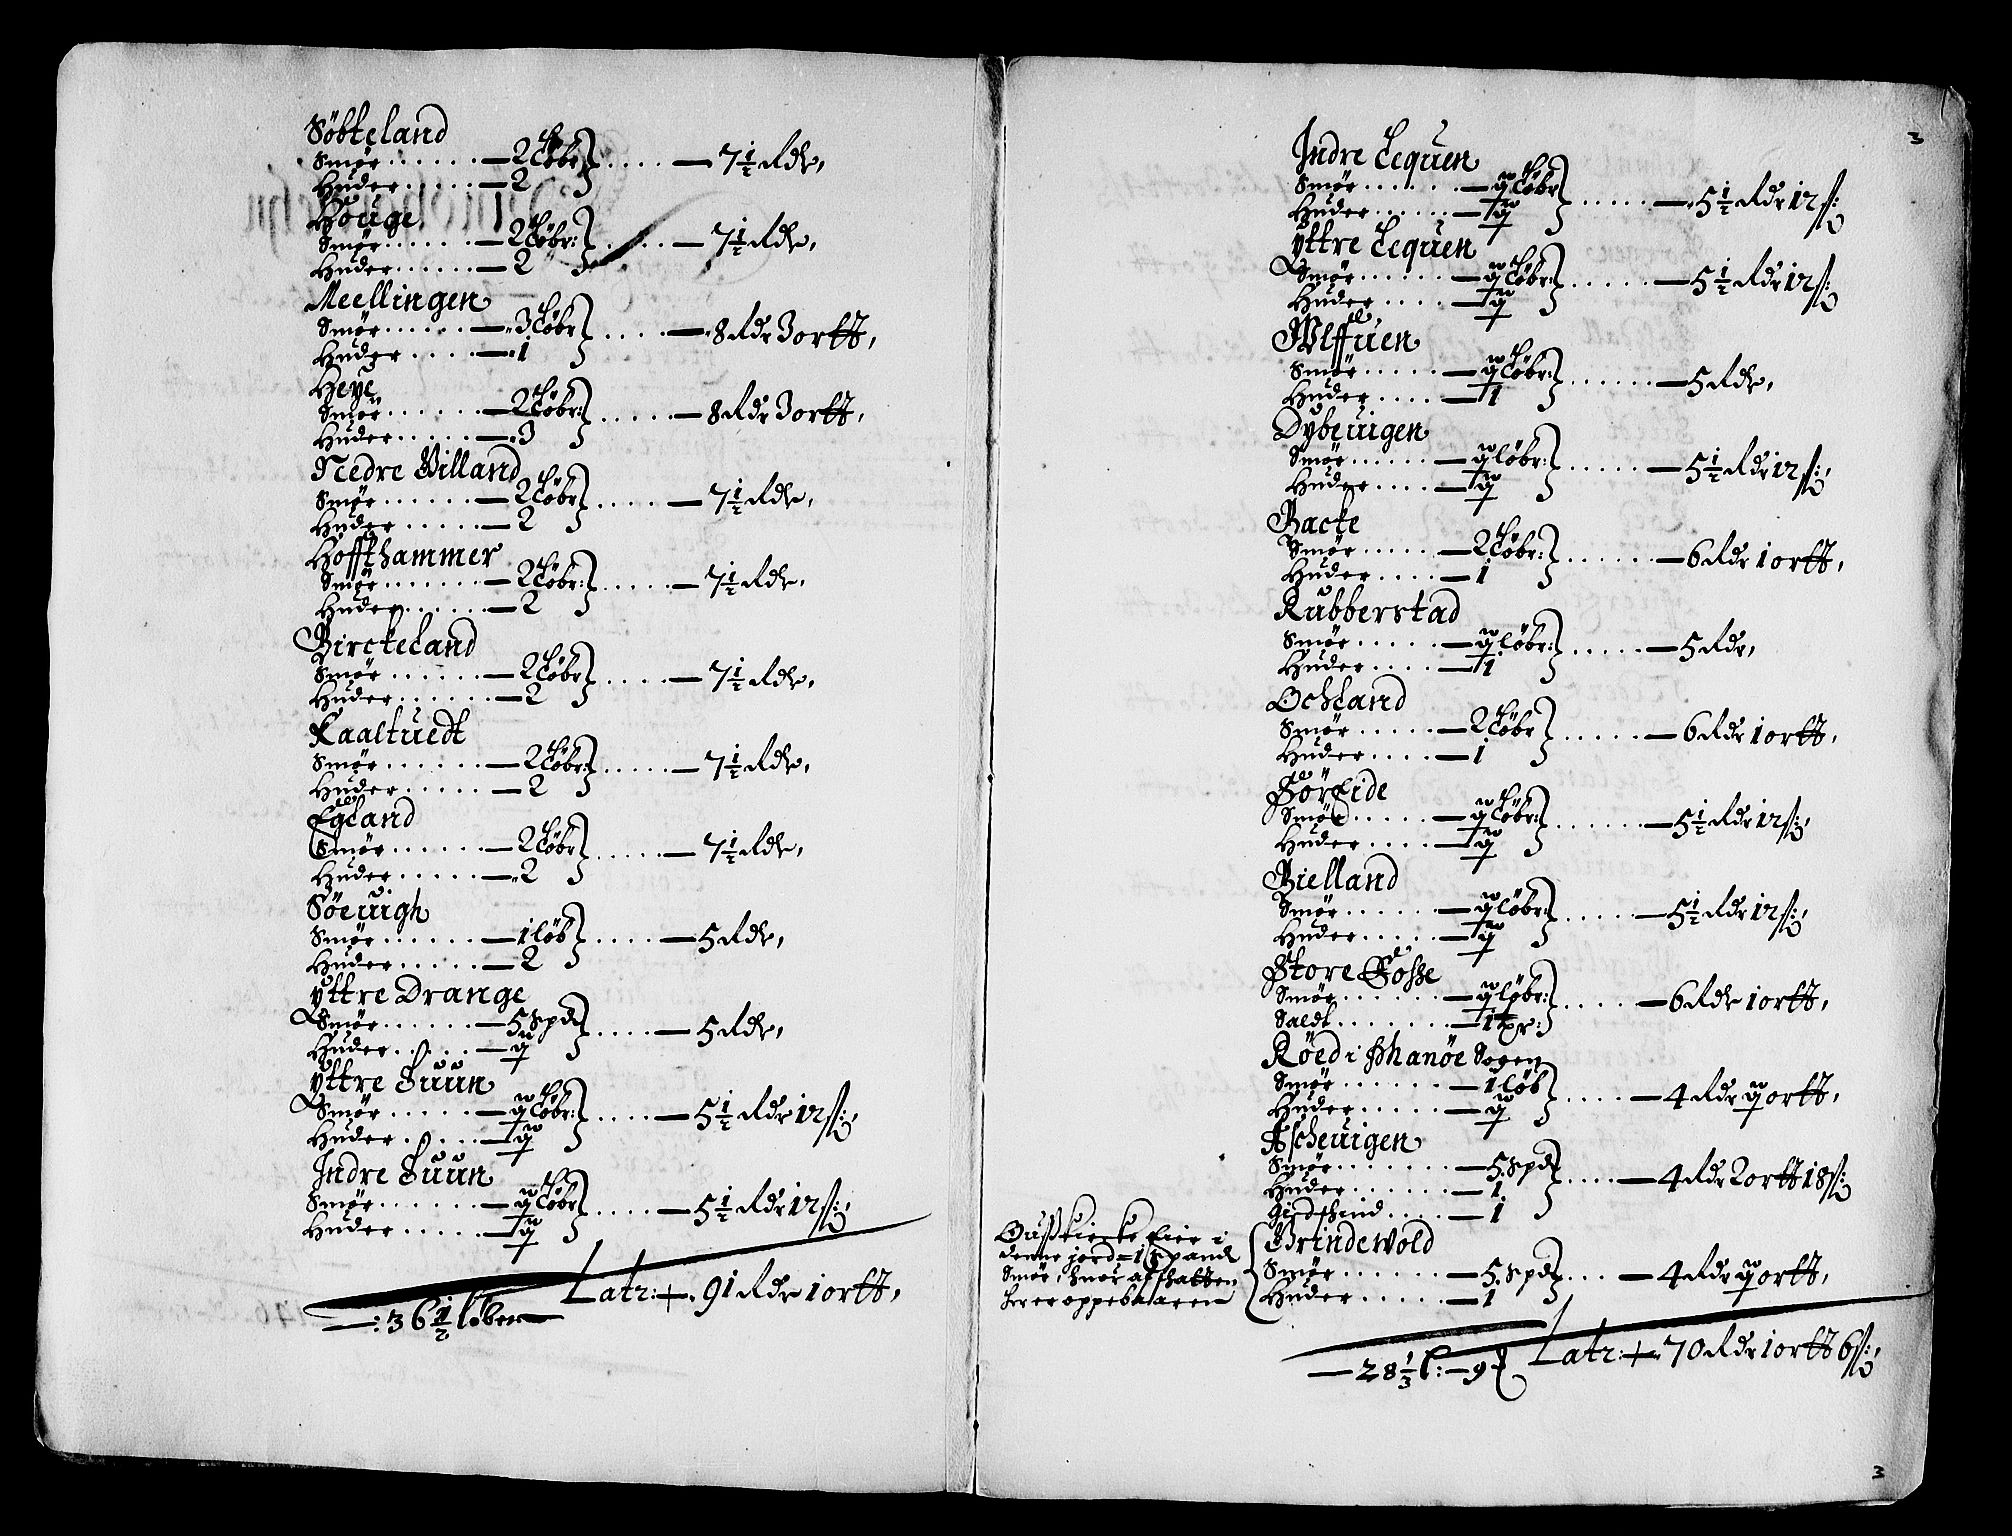 Söbteland
Smör . . . . . . — 2 Löbr } . . . . — 7½ Rdr,
Huder . . . . . — 2
Houge
Smör . . . . . . — 2 Löbr: } . . . . — 7½ Rdr,
Huder . . . . . . — 2
Meellingen
Smör . . . . . . — 3 Löbr } . . . . — 8 Rdr 3 ortt,
Huder . . . . — 1
Heye
Smör . . . . . . — 2 Löbr: } . . . . . — 8 Rdr 3 ortt,
Huder . . . . . — 3
Nedre Villand
Smör . . . . . . — 2 Löbr } . . . . — 7½ Rdr,
Huder . . . . . — 2
Höffthammer
Smör . . . . . . — 2 Löbr: } . . . . . — 7½ Rdr,
Huder . . . . . . — 2
Birckeland
Smör . . . . . . — 2 Löbr } . . . . . — 7½ Rdr,
Huder . . . . . . — 2
Kaaltuedt
Smör . . . . . . — 2 Löbr: } . . . . . — 7½ Rdr,
Huder . . . . . — 2
Egeland
Smör . . . . . . — 2 Löbr } . . . . . — 7½ Rdr,
Huder . . . . . — 2
Söeuigh
Smör . . . . . . — 1 löb } . . . . — 5 Rdr,
Huder . . . . . — 2
yttre Drange
Smör . . . . . . — 5 spd } . . . . — 5 Rdr,
Huder . . . . . — q
yttre Suun
Smör . . . . . — q Löbr: } . . . . — 5½ Rdr 12 ß:
Huder . . . . — q
Indre Suun
Smör . . . . . . — q Löbr } . . . . — 5½ Rdr 12 ß:
Huder . . . . . — q
Latr: — 91 Rdr 1 ortt,
— : 36½ löber —
3
Indre Lequen
Smör . . . . . . — q Löbr } . . . . . — 5½ Rdr 12 ß:
Huder . . . . . . — q
yttre Lequen
Smör . . . . . . — q Löbr: } . . . . . . — 5½ Rdr 12 ß:
Huder . . . . — q
Wlffuen
Smör . . . . . — q Löbr: } . . . . . . — 5 Rdr,
Huder . . . . — 1
Dybeuigen
Smör . . . . . . — q löbr: } . . . . . — 5½ Rdr 12 ß:
Huder . . . . — q
Backe
Smör . . . . . — 2 Löbr: } . . . . . . — 6 Rdr 1 ortt,
Huder . . . . — 1
Rubberstad
Smör . . . . . — q löbr: } . . . . . — 5 Rdr,
Huder . . . . — 1
Ochland
Smör . . . . . — 2 Löbr } . . . . . — 6 Rdr 1 ortt,
Huder . . . . — 1
Föreide
Smör . . . . . — q Löbr: } . . . . . . — 5½ Rdr 12 ß:
Huder . . . . — q
Bielland
Smör . . . . . . — q löbr: } . . . . . — 5½ Rdr 12 ß:
Huder . . . . . — q
Store Fosse
Smör . . . . . . — q löbr: } . . . . — 6 Rdr 1 ortt,
Saldt . . . . . . . — 1 tr:
Röed i Phanöe Sogen
Smör . . . . . . — 1 löb } . . . . — 4 Rdr q ortt,
Huder . . . . . . — q
Ascheuigen
Smör . . . . . . . — 5 spd } . . . . — 4 Rdr 2 ortt 18 ß:
Huder . . . . . . — 1
giedshind . . . . — 1
Grindewold
Smör . . . . . . — 5 spd } . . . — 4 Rdr q ortt,
Huder . . . . — 1
Ouss kiercke Eier i
denne jord = 1 spand
Smör, huor aff schatten
her er oppebaaren
Latr: — 70 Rdr 1 ortt 6 ß:
— 28⅓ l: — 9
3